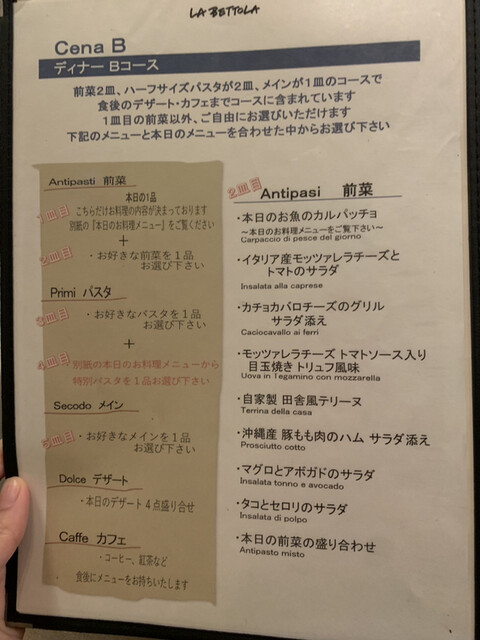 LA BETTOLA
Cena B
ディナー Bコース
前菜2皿、ハーフサイズパスタが2皿、メインが1皿のコースで
食後のデザート・カフェまでコースに含まれています
1皿目の前菜以外、ご自由にお選びいただけます
下記のメニューと本日のメニューを合わせた中からお選び下さい
Antipasti 前菜
本日の1品
1皿目
こちらだけお料理の内容が決まっております
別紙の『本日のお料理メニュー』をご覧ください
+
2皿目
・お好きな前菜を1品
お選び下さい
Primi パスタ
3皿目
・お好きなパスタを1品
お選び下さい
+
4皿目
別紙の本日のお料理メニューから
特別パスタを1品お選び下さい
Secodo メイン
5皿目
・お好きなメインを1品
お選び下さい
Dolce デザート
・本日のデザート 4点盛り合せ
Caffe カフェ
・コーヒー、紅茶など
食後にメニューをお持ちいたします
2皿目
Antipasi 前菜
・本日のお魚のカルパッチョ
~本日のお料理メニューをご覧下さい~
Carpaccio di pesce del giorno
・イタリア産モッツァレラチーズと
トマトのサラダ
Insalata alla caprese
・カチョカバロチーズのグリル
サラダ添え
Caciocavallo ai ferri
・モッツァレラチーズ トマトソース入り
目玉焼き トリュフ風味
Uova in Tegamino con mozzarella
・自家製 田舎風テリーヌ
Terrina della casa
・沖縄産 豚もも肉のハム サラダ添え
Prosciutto cotto
・マグロとアボガドのサラダ
Insalata tonno e avocado
・タコとセロリのサラダ
Insalata di polpo
・本日の前菜の盛り合わせ
Antipasto misto